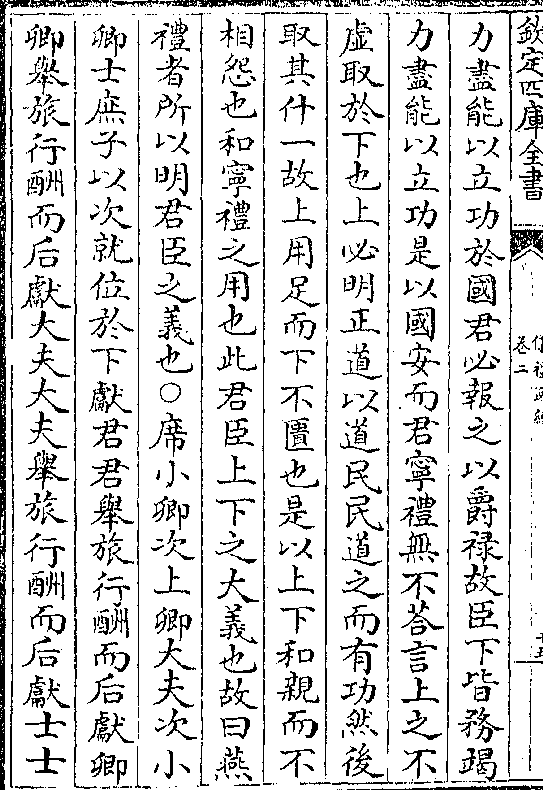 欽定四庫全書
卷二
力盡能以立功於國君必報之以爵祿故臣下皆務竭
力盡能以立功是以國安而君寧禮無不荅言上之不
虚取於下也上必明正道以道民民道之而有功然後
取其什一故上用足而下不匱也是以上下和親而不
相怨也和寧禮之用也此君臣上下之大義也故曰燕
禮者所以明君臣之義也○席小卿次上卿大夫次小
卿士庶子以次就位於下獻君君舉旅行酬而后獻卿
卿舉旅行酬而后獻大夫大夫舉旅行酬而后獻士士